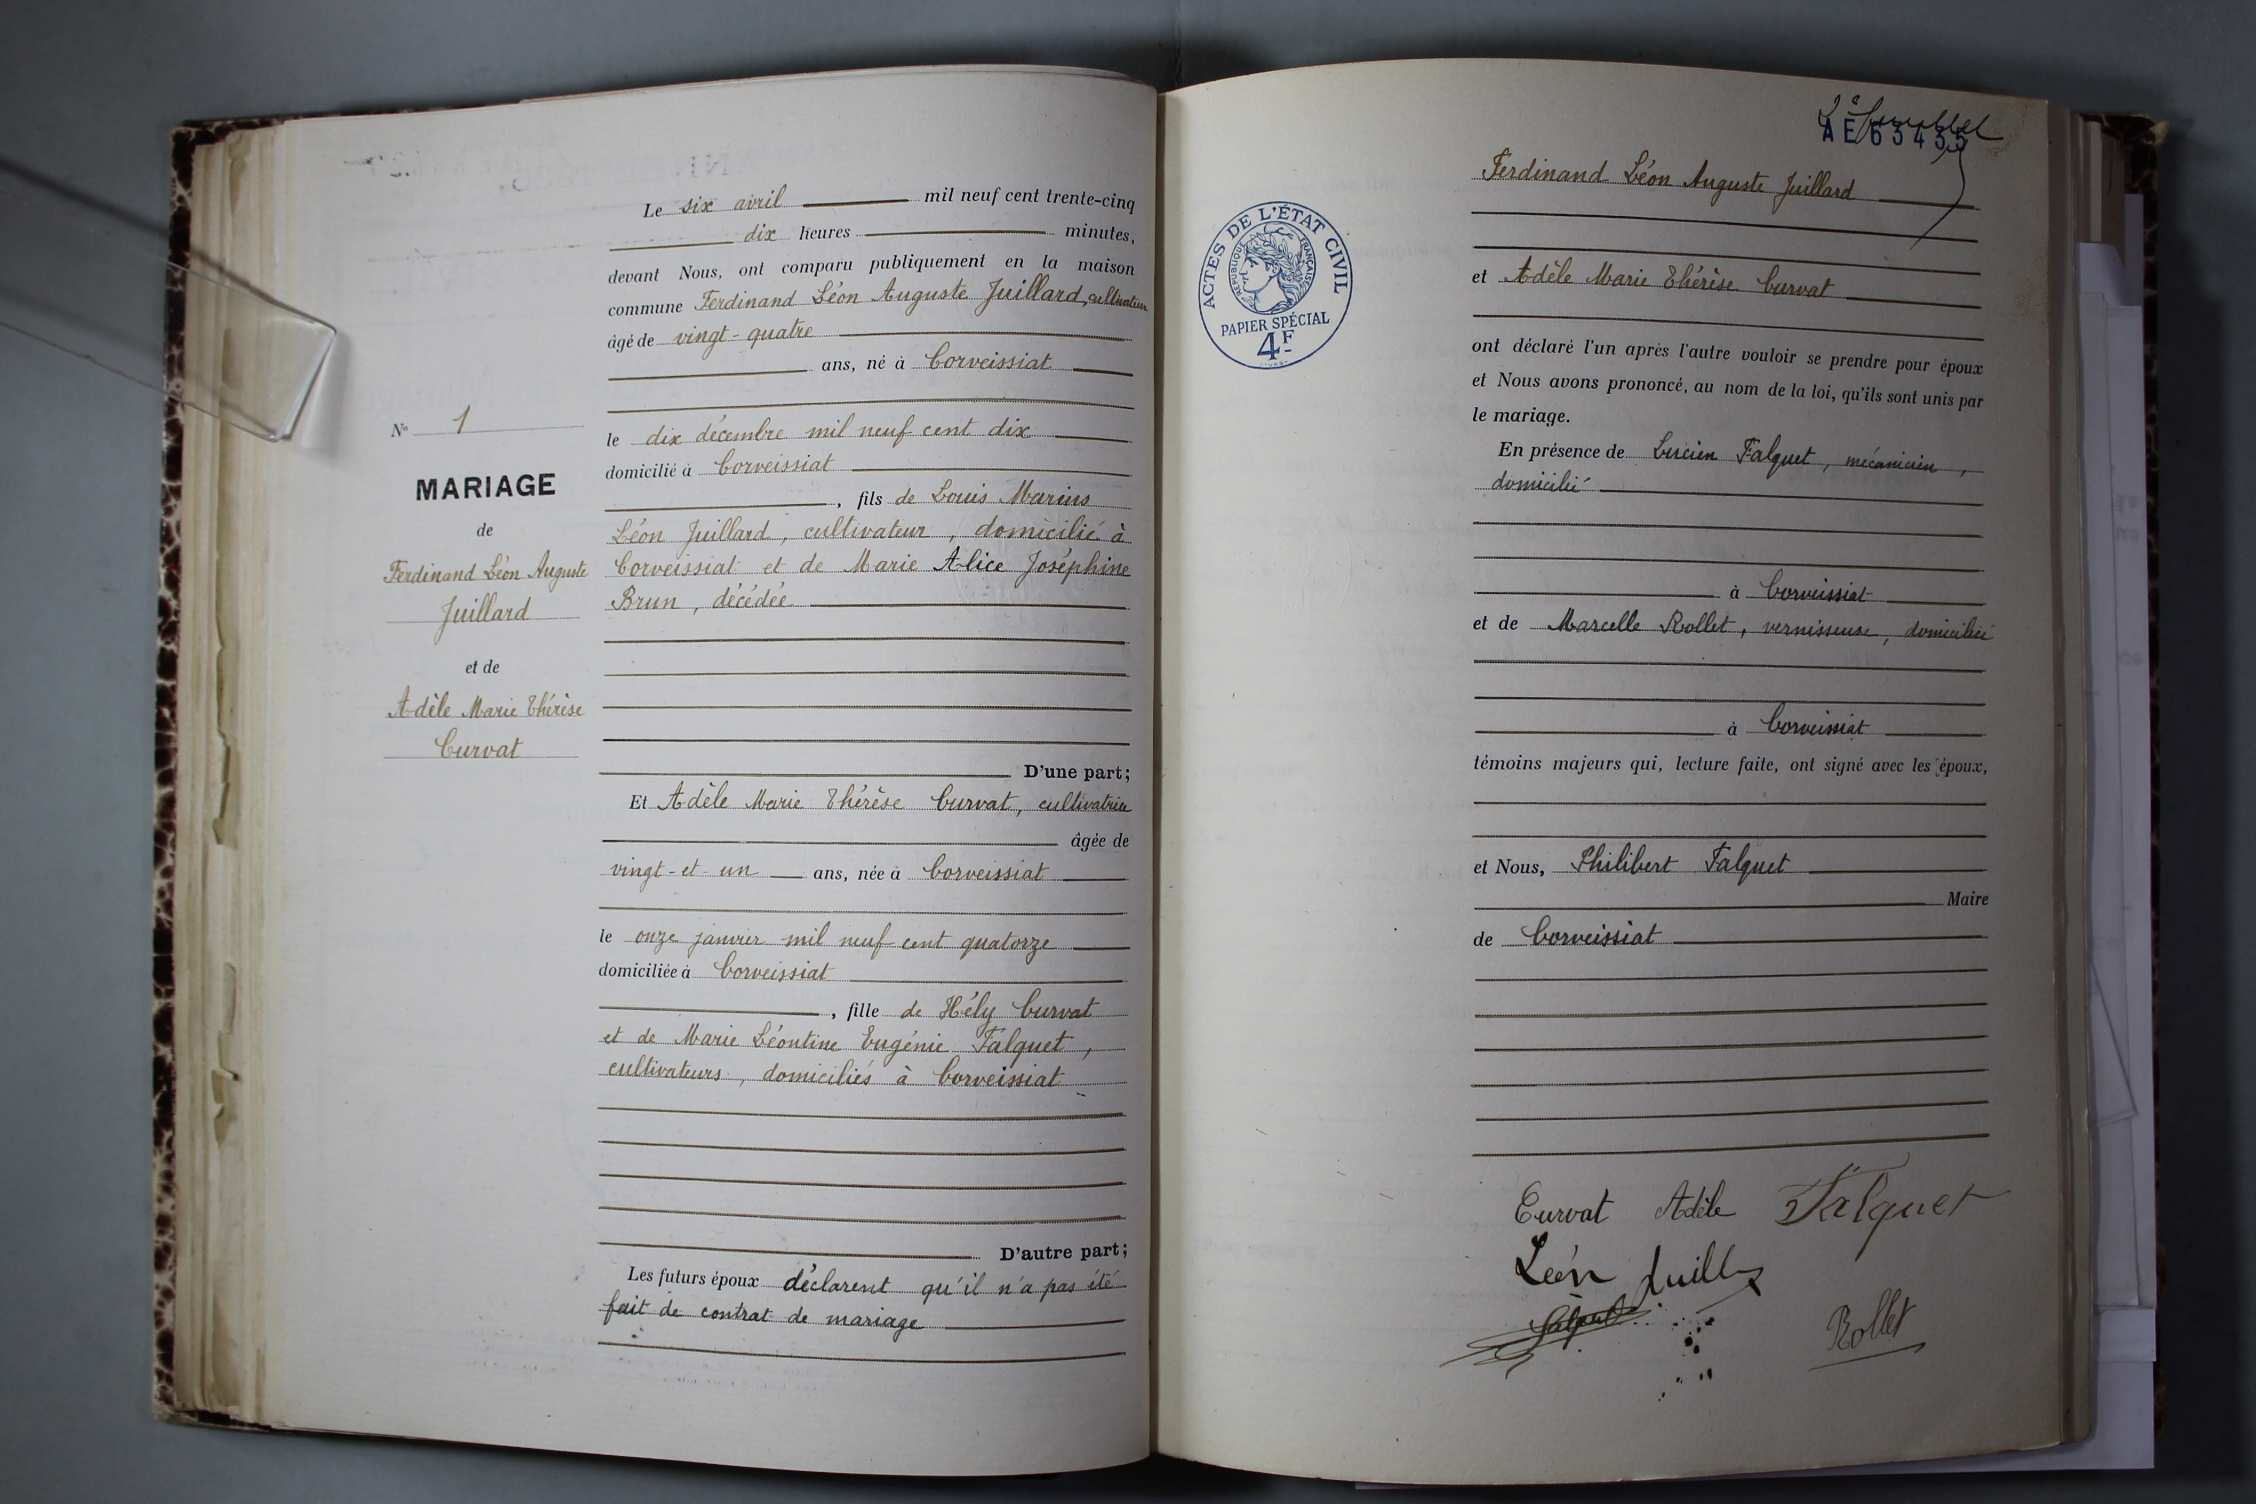 Le six avril mil neuf cent trente-cinq
dix heures minutes,
devant Nous, ont comparu publiquement en la maison
commune Ferdinand Léon Auguste Juillard, cultivateur
âgé de vingt-quatre
ans, né à Corveissiat
le dix décembre mil neuf cent dix
domicilié à Corveissiat
, fils de Louis Marius
Léon Juillard, cultivateur, domicilié à
Corveissiat et de Marie Alice Joséphine
Brun, décédée
D'une part;
Et Adèle Marie Thérèse Curvat, cultivatrice
âgée de
vingt-et-un ans, née à Corveissiat
le onze janvier mil neuf cent quatorze
domiciliée à Corveissiat
, fille de Hély Curvat
et de Marie Léontine Eugénie Falquet,
cultivateurs, domiciliés à Corveissiat
D'autre part;
Les futurs époux déclarent qu'il n'a pas été
fait de contrat de mariage
N° 1
MARIAGE
de
Ferdinand Léon Auguste
Juillard
et de
Adèle Marie Thérèse
Curvat
AE 63435
ACTES DE L'ÉTAT CIVIL
RÉPUBLIQUE FRANÇAISE
PAPIER SPÉCIAL
4F
Ferdinand Léon Auguste Juillard
et Adèle Marie Thérèse Curvat
ont déclaré l'un après l'autre vouloir se prendre pour époux
et Nous avons prononcé, au nom de la loi, qu'ils sont unis par
le mariage.
En présence de Lucien Falquet, mécanicien,
domicilié
à Corveissiat
et de Marcelle Rollet, vernisseuse, domiciliée
à Corveissiat
témoins majeurs qui, lecture faite, ont signé avec les époux,
et Nous, Philibert Falquet
Maire
de Corveissiat
Curvat Adèle Falquet
Léon Juill
Rollet